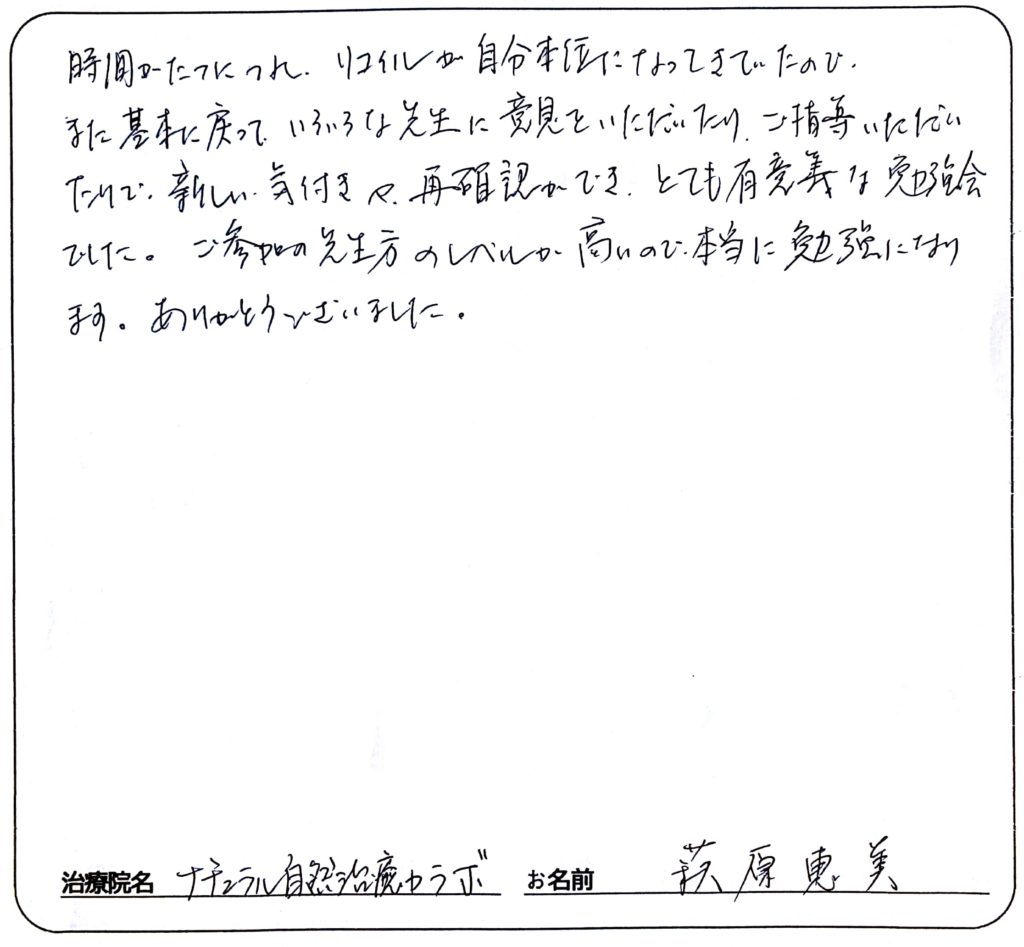 時間がたつにつれ、リコイルが自分本位になってきていたので、
また基本に戻って、いろいろな先生に意見をいただいたり、ご指導いただい
たりで、新しい気付きや、再確認ができ、とても有意義な勉強会
でした。ご参加の先生方のレベルが高いので、本当に勉強になり
ます。ありがとうございました。
治療院名 ナチュラル自然治癒力ラボ お名前 萩原恵美